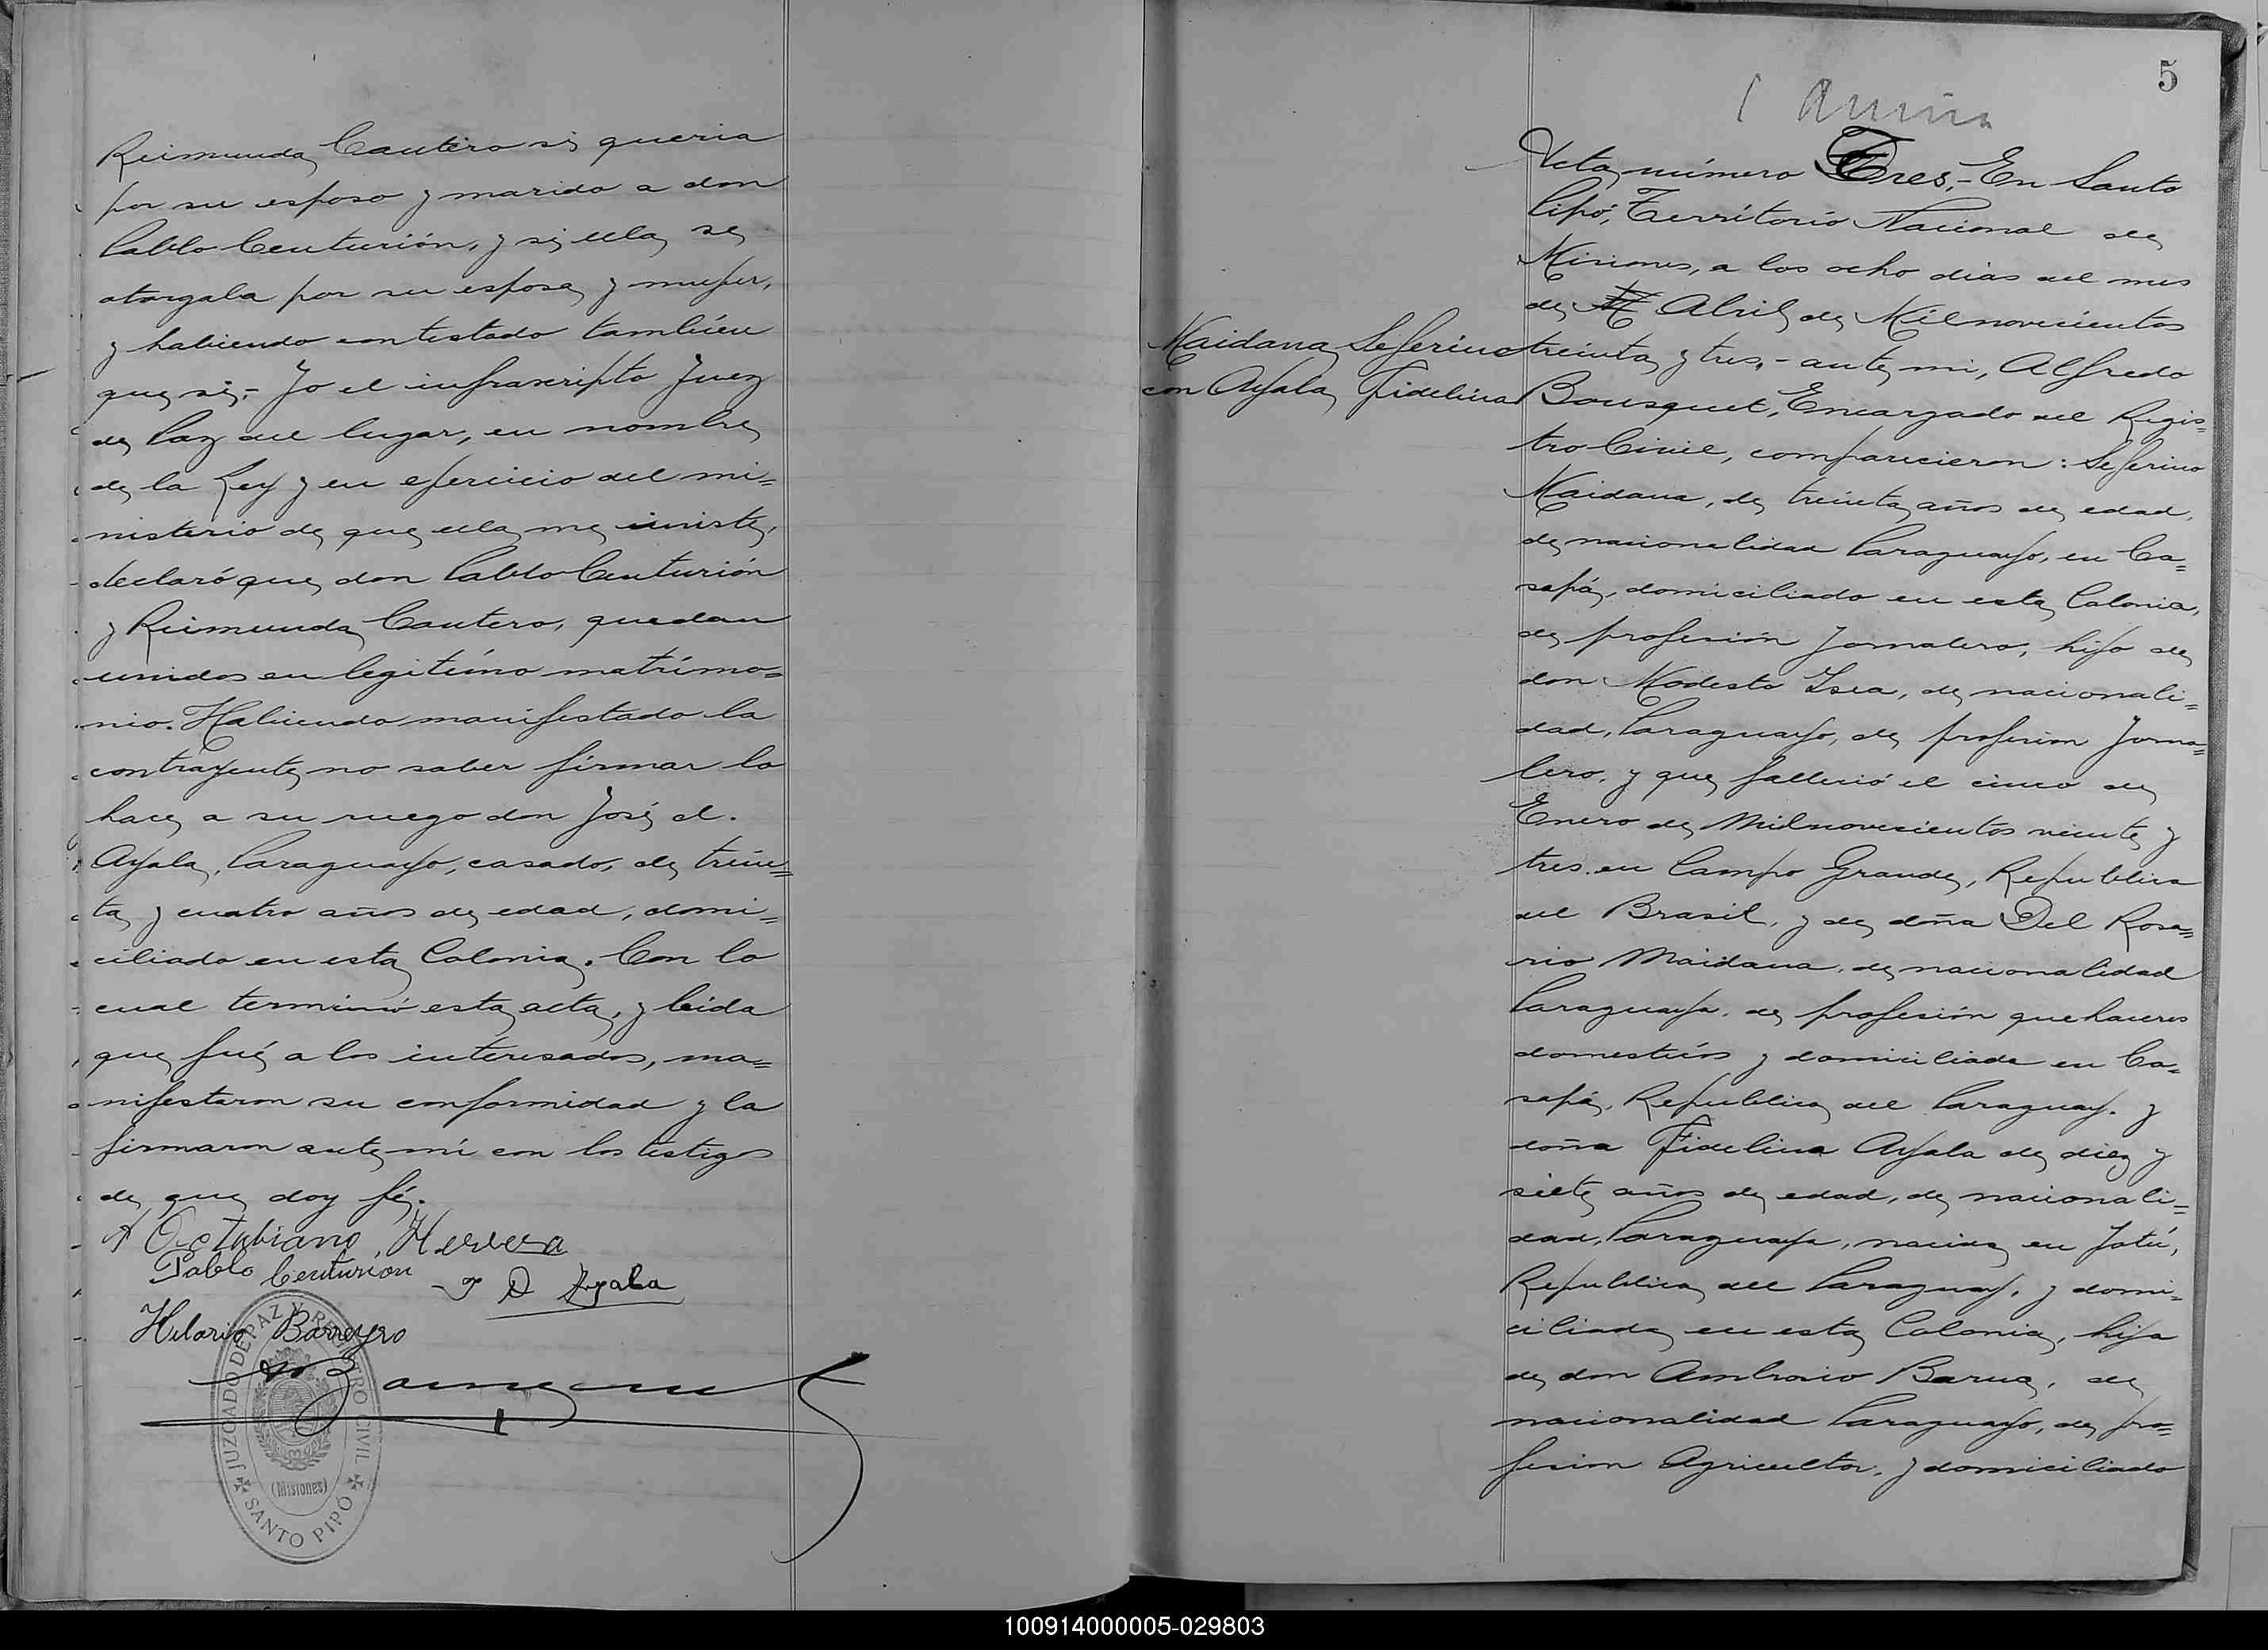 Reimunda Cantero si queria
por su esposo y marido a don
Pablo Centurión, y si ella se
otorgaba por su esposa y mujer,
y habiendo contestado también
que si,- Yo el infrascripto Juez
de Paz del lugar, en nombre
de la Ley y en ejercicio del mi=
nisterio de que ella me inviste,
declaró que don Pablo Centurión
y Reimunda Cantero, quedan
unidos en legitimo matrimo=
nio. Habiendo manifestado la
contrayente no saber firmar lo
hace a su ruego don José d.
Ayala, Paraguayo, casado, de trein=
ta y cuatro años de edad, domi=
ciliado en esta Colonia. Con lo
cual terminó esta acta, y leida
que fué a los interesados, ma=
nifestaron su conformidad y la
firmaron ante mí con los testigos
de que doy fé.
Octabiano Herrera
Pablo Centurion
J D Ayala
Hilario Barreyro
JUZGADO DE PAZ Y REGISTRO CIVIL
(Misiones)
SANTO PIPÓ
5
Acta número Tres.- En Santo
Pipó, Territorio Nacional de
Misiones, a los ocho dias del mes
de Abril de Milnovecientos
Maidana Seferino
con Ayala Fidelina
treinta y tres,- ante mi, Alfredo
Bousquet, Encargado del Regis=
tro Civil, comparecieron: Seferino
Maidana, de treinta años de edad,
de nacionalidad Paraguayo, en Ca=
sapá, domiciliado en esta Colonia,
de profesión Jornalero, hijo de
don Modesto Isea, de nacionali=
dad, Paraguayo, de profesion Jorna=
lero, y que falleció el cinco de
Enero de Milnovecientos veinte y
tres en Campo Grande, Republica
del Brasil, y de doña Del Rosa=
rio Maidana, de nacionalidad
Paraguaya, de profesión quehaceres
domesticos y domiciliada en Ca=
sapá, Republica del Paraguay. y
doña Fidelina Ayala de diez y
siete años de edad, de nacionali=
dad, Paraguaya, nacida en Jatú,
Republica del Paraguay, y domi=
ciliada en esta Colonia, hija
de don Ambrosio Barua, de
nacionalidad Paraguayo, de pro=
fesion Agricultor, y domiciliado
100914000005-029803